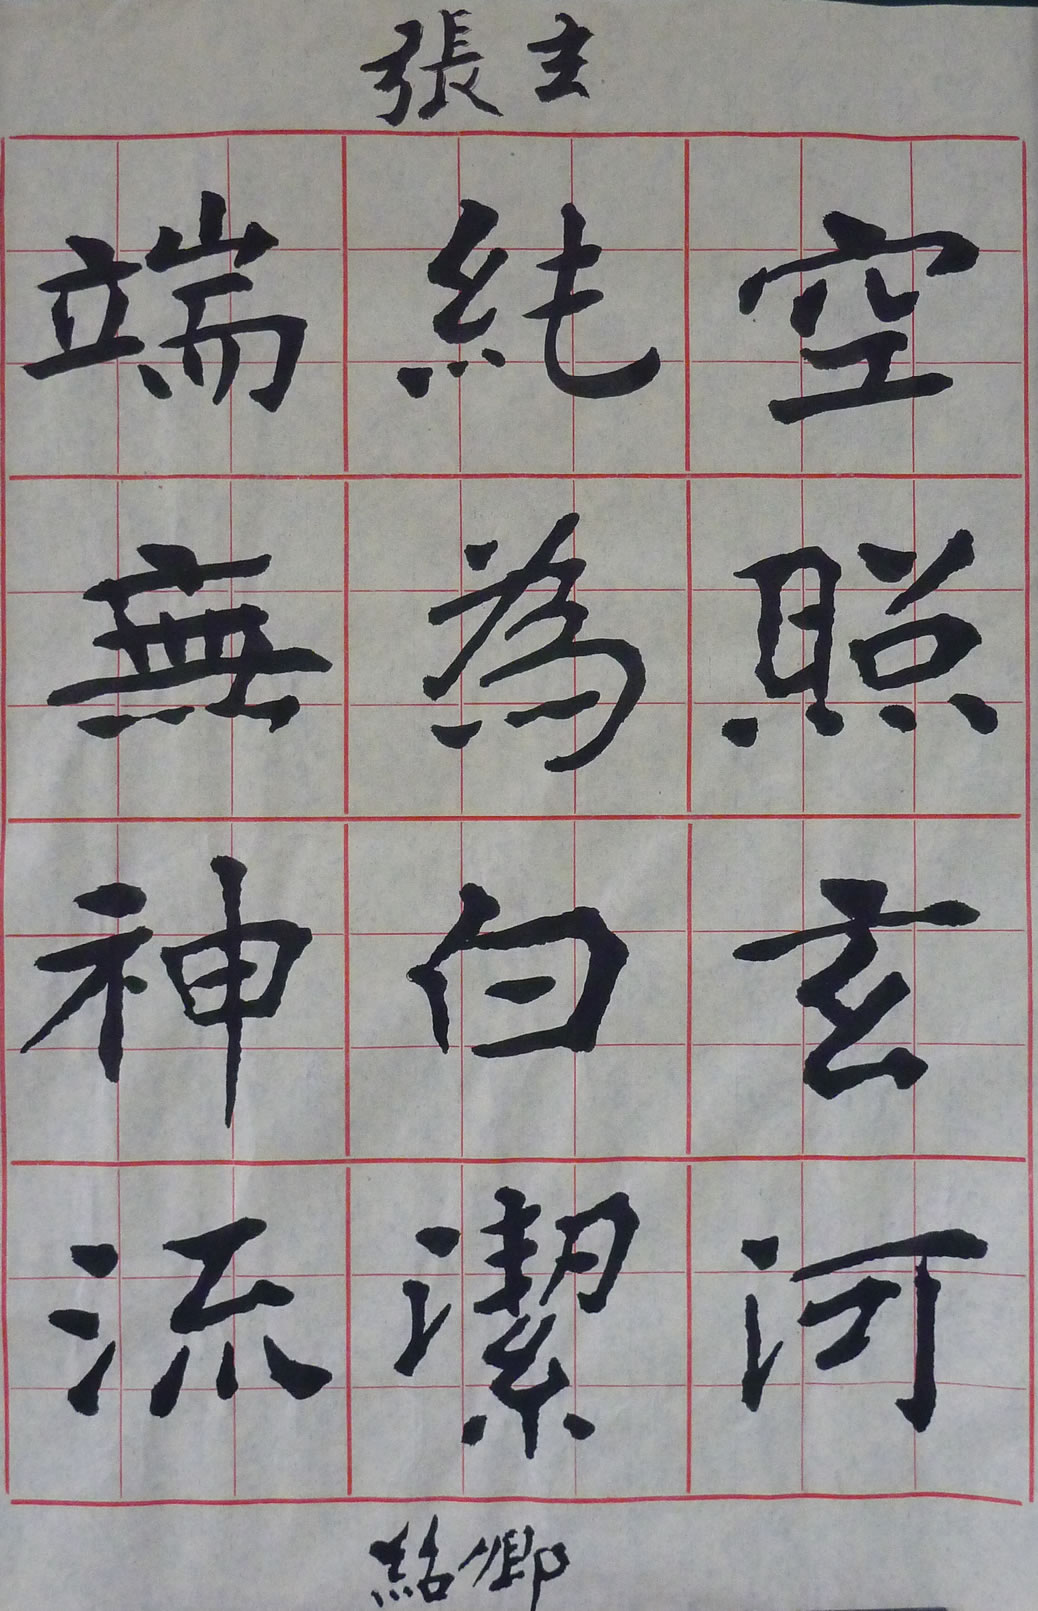 張玄
空照玄河
純為白潔
端無神流
紹卿